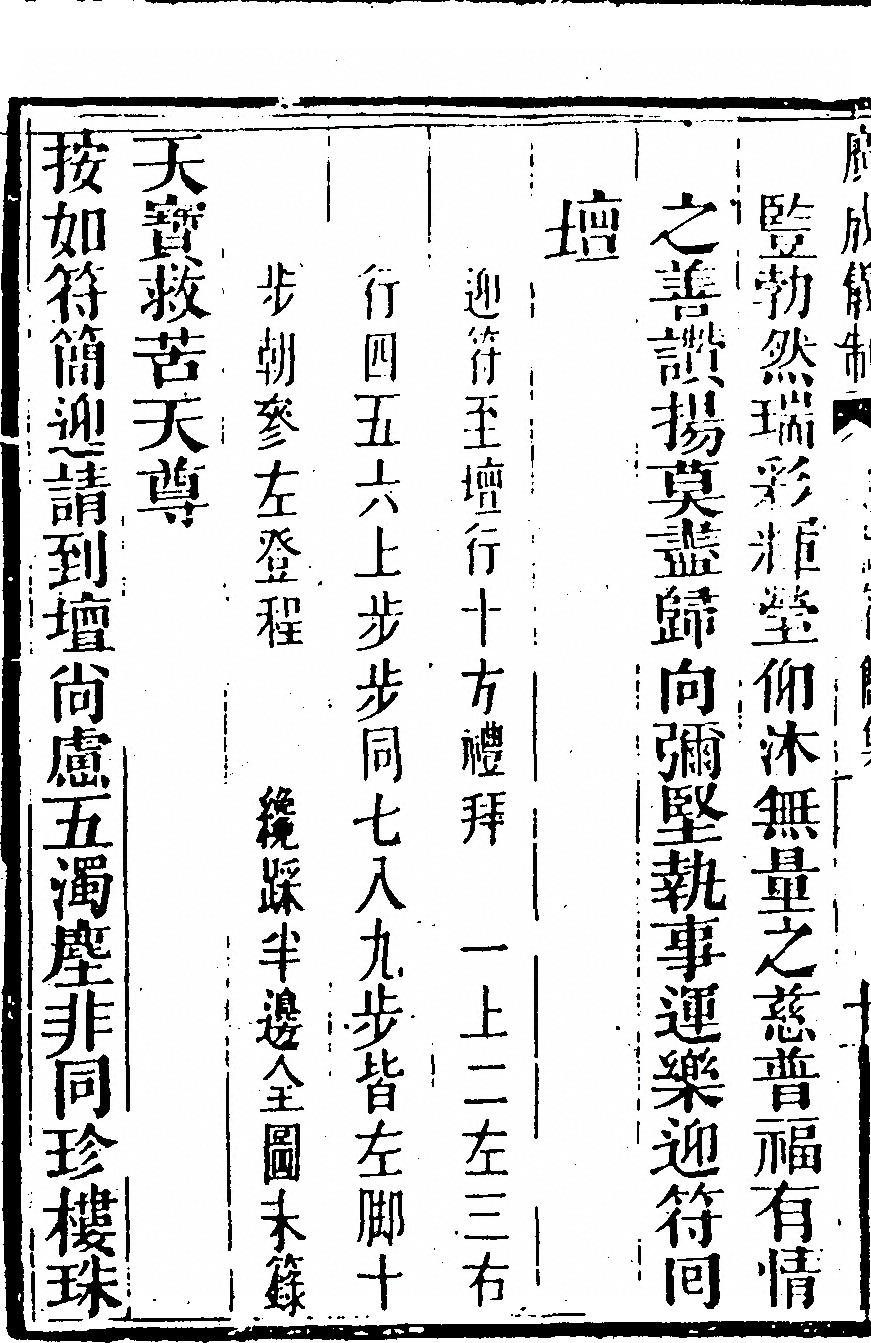 廣成儀制
監勃然瑞彩輝瑩仰沐無量之慈普福有情
之善讚揚莫盡歸向彌堅執事運樂迎符囘
壇
迎符至壇行十方禮拜 一上二左三右
行四五六上步步同七入九步皆左脚十
步朝參左登程 纔踩半邊全圖未籙
天寶救苦天尊
按如符簡迎請到壇尚慮五濁塵非同珍樓珠